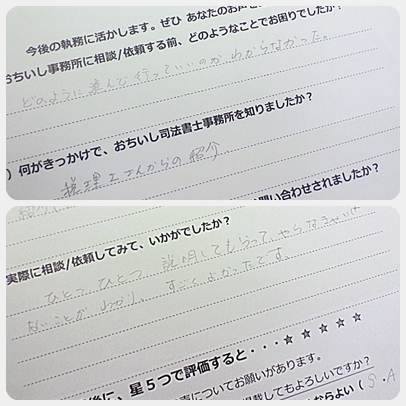 今後の執務に活かします。ぜひ あなたのお声を
おちいし事務所に相談/依頼する前、どのようなことでお困りでしたか?
どのように進んで行っていいのかわからなかった。
) 何がきっかけで、おちいし司法書士事務所を知りましたか?
税理士さんからの紹介
問い合わせされましたか?
実際に相談/依頼してみて、いかがでしたか?
ひとつひとつ 説明してもらって、やらなきゃいけ
ないことがわかり、すごくよかったです。
後に、星5つで評価すると・・・☆ ☆ ☆ ☆ ☆
についてお願いがあります。
掲載してもよろしいですか?
ならよい ( S・A